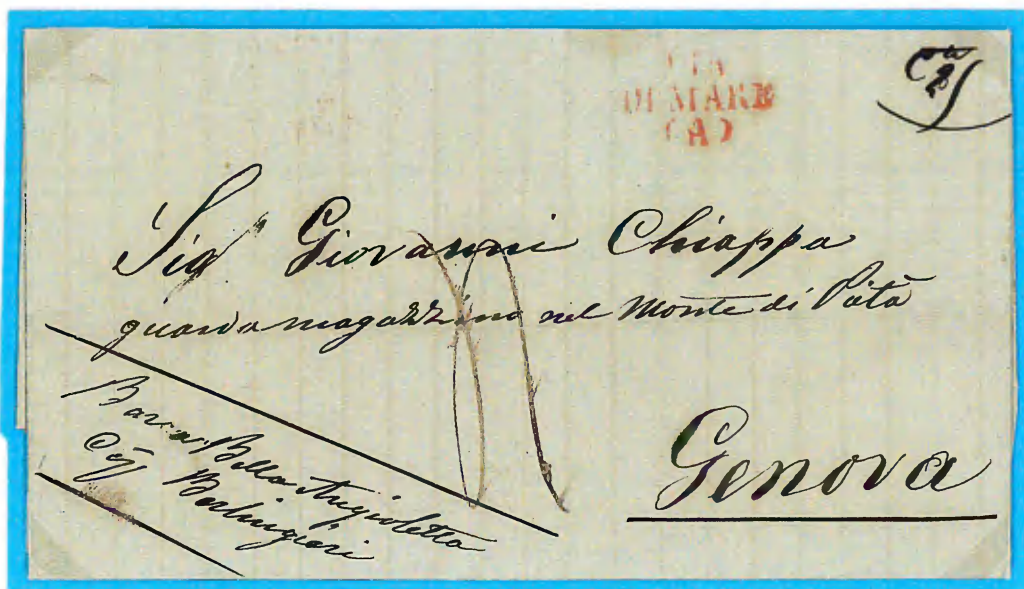 VIA
DI MARE
(A)
Sig Giovanni Chiappa
guardamagazzino nel Monte di Pietà
Genova
Bella Angioletta
Berlingieri